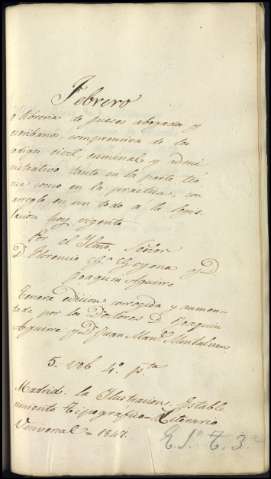 Febrero
ó librería de jueces abogados y
escribanos comprensiva de los
codigos civil, criminal y admi-
nistrativo tanto en la parte teó-
rica como en la practica, con
arreglo en un todo a la legis-
lacion hoy vigente
Por el Ilmo. Señor
D. Florencio Ga. Goyena y D.
Joaquin Aguirre
Tercera edicion corregida y aumen-
tada por los Doctores D. Joaquin
Aguirre y D. Juan Manl. Montalvan
5. vols 4º pta
Madrid: la Ilustracion, Estable-
cimiento tipografico-Literario
Universal 1847.